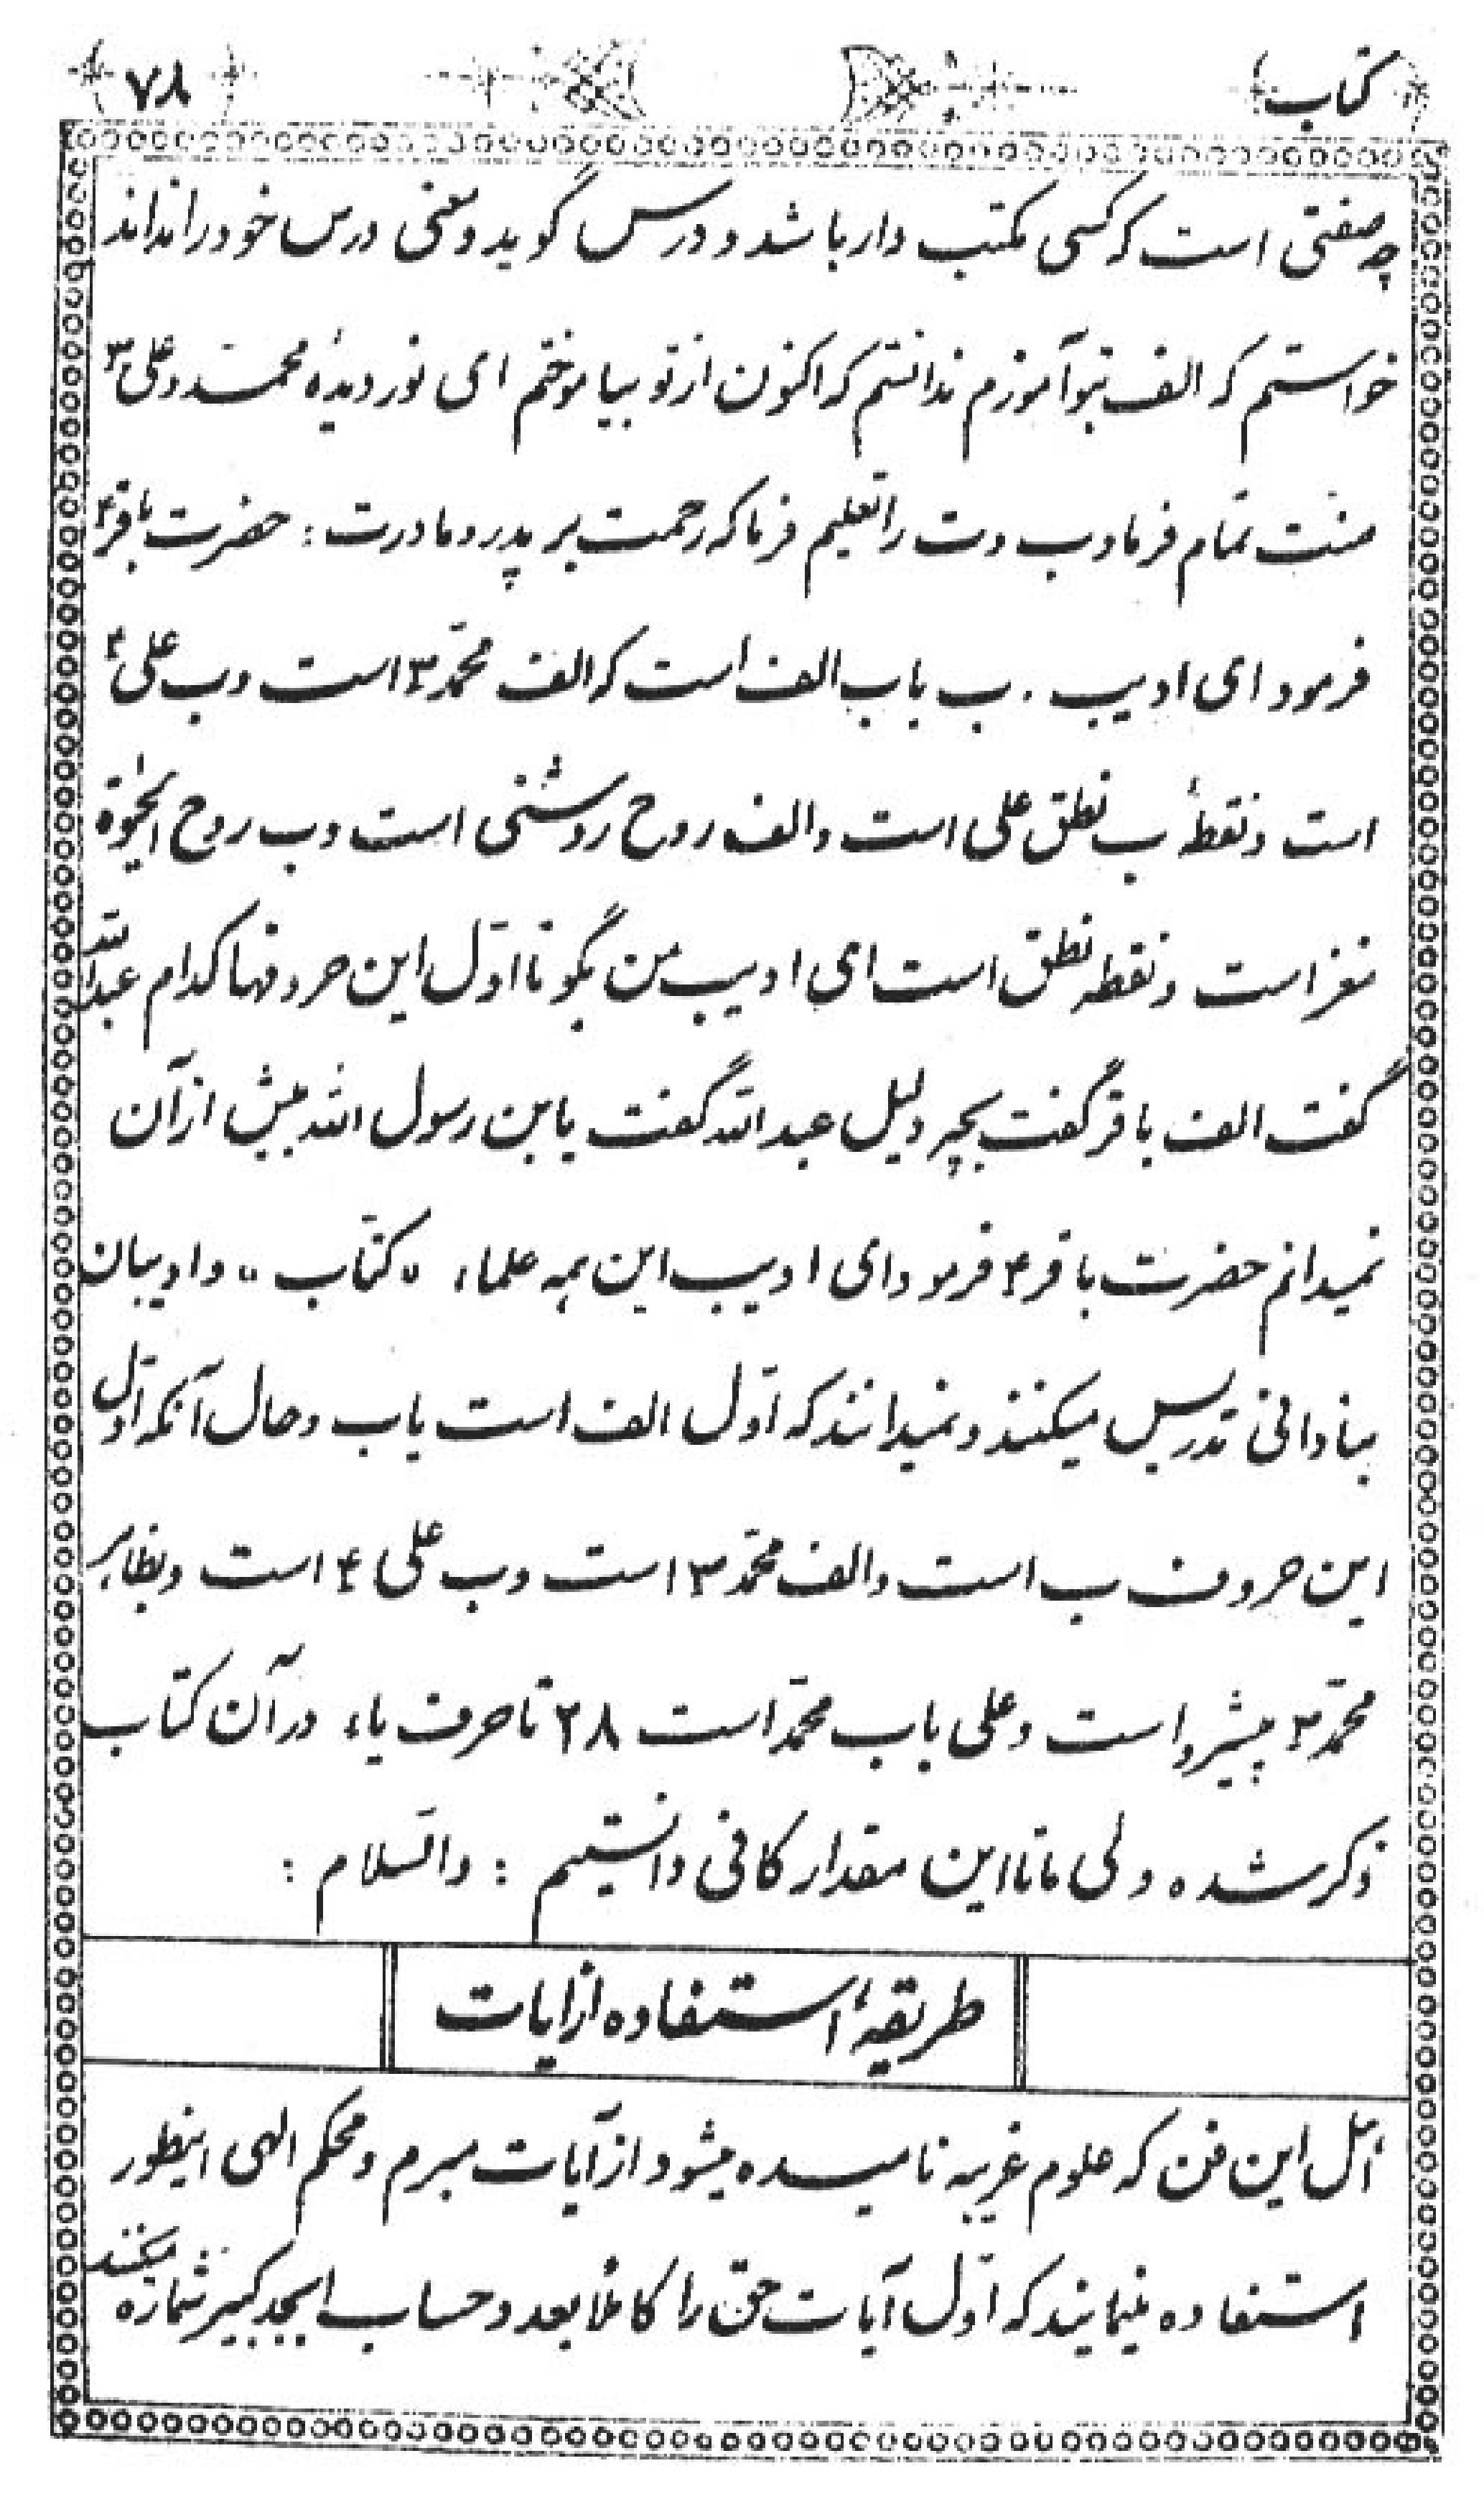 کتاب
۷۸
چه صفتی است که کسی مکتب دار باشد و درس گوید و معنی درس خود را نداند
خواستم که الف بتو آموزم ندانستم که اکنون از تو بیاموختم ای نور دیدهٔ محمد و علی ۳
منت تمام فرما و ب و ت را تعلیم فرما که رحمت بر پدر و مادرت : حضرت باقر ۴
فرمود ای ادیب . ب باب الف است که الف محمّد ۳ است و ب علی ۴
است و نقطهٔ ب نطق علی است و الف روح روشنی است و ب روح الحیوة
مغز است و نقطه نطق است ای ادیب من بگو تا اوّل این حروفها کدام عبدالله
گفت الف باقر گفت بچه دلیل عبدالله گفت یابن رسول الله بیش از آن
نمیدانم حضرت باقر ۴ فرمود ای ادیب این همه علماء « کتّاب » و ادیبان
بنادانی تدریس میکنند و نمیدانند که اوّل الف است یا ب و حال آنکه اوّل
این حروف ب است و الف محمّد ۳ است و ب علی ۴ است و بظاهر
محمّد ۳ پیشرو است و علی باب محمّد است ۲۸ تا حرف یاء در آن کتاب
ذکر شده ولی ما تا این مقدار کافی دانستیم : والسّلام :
طریقهٔ استفاده از ایات
اهل این فن که علوم غریبه نامیده میشود از آیات مبرم و محکم الهی اینطور
استفاده مینمایند که اوّل آیات حق را کاملاً بعدد و حساب ابجد کبیر شماره میکنند